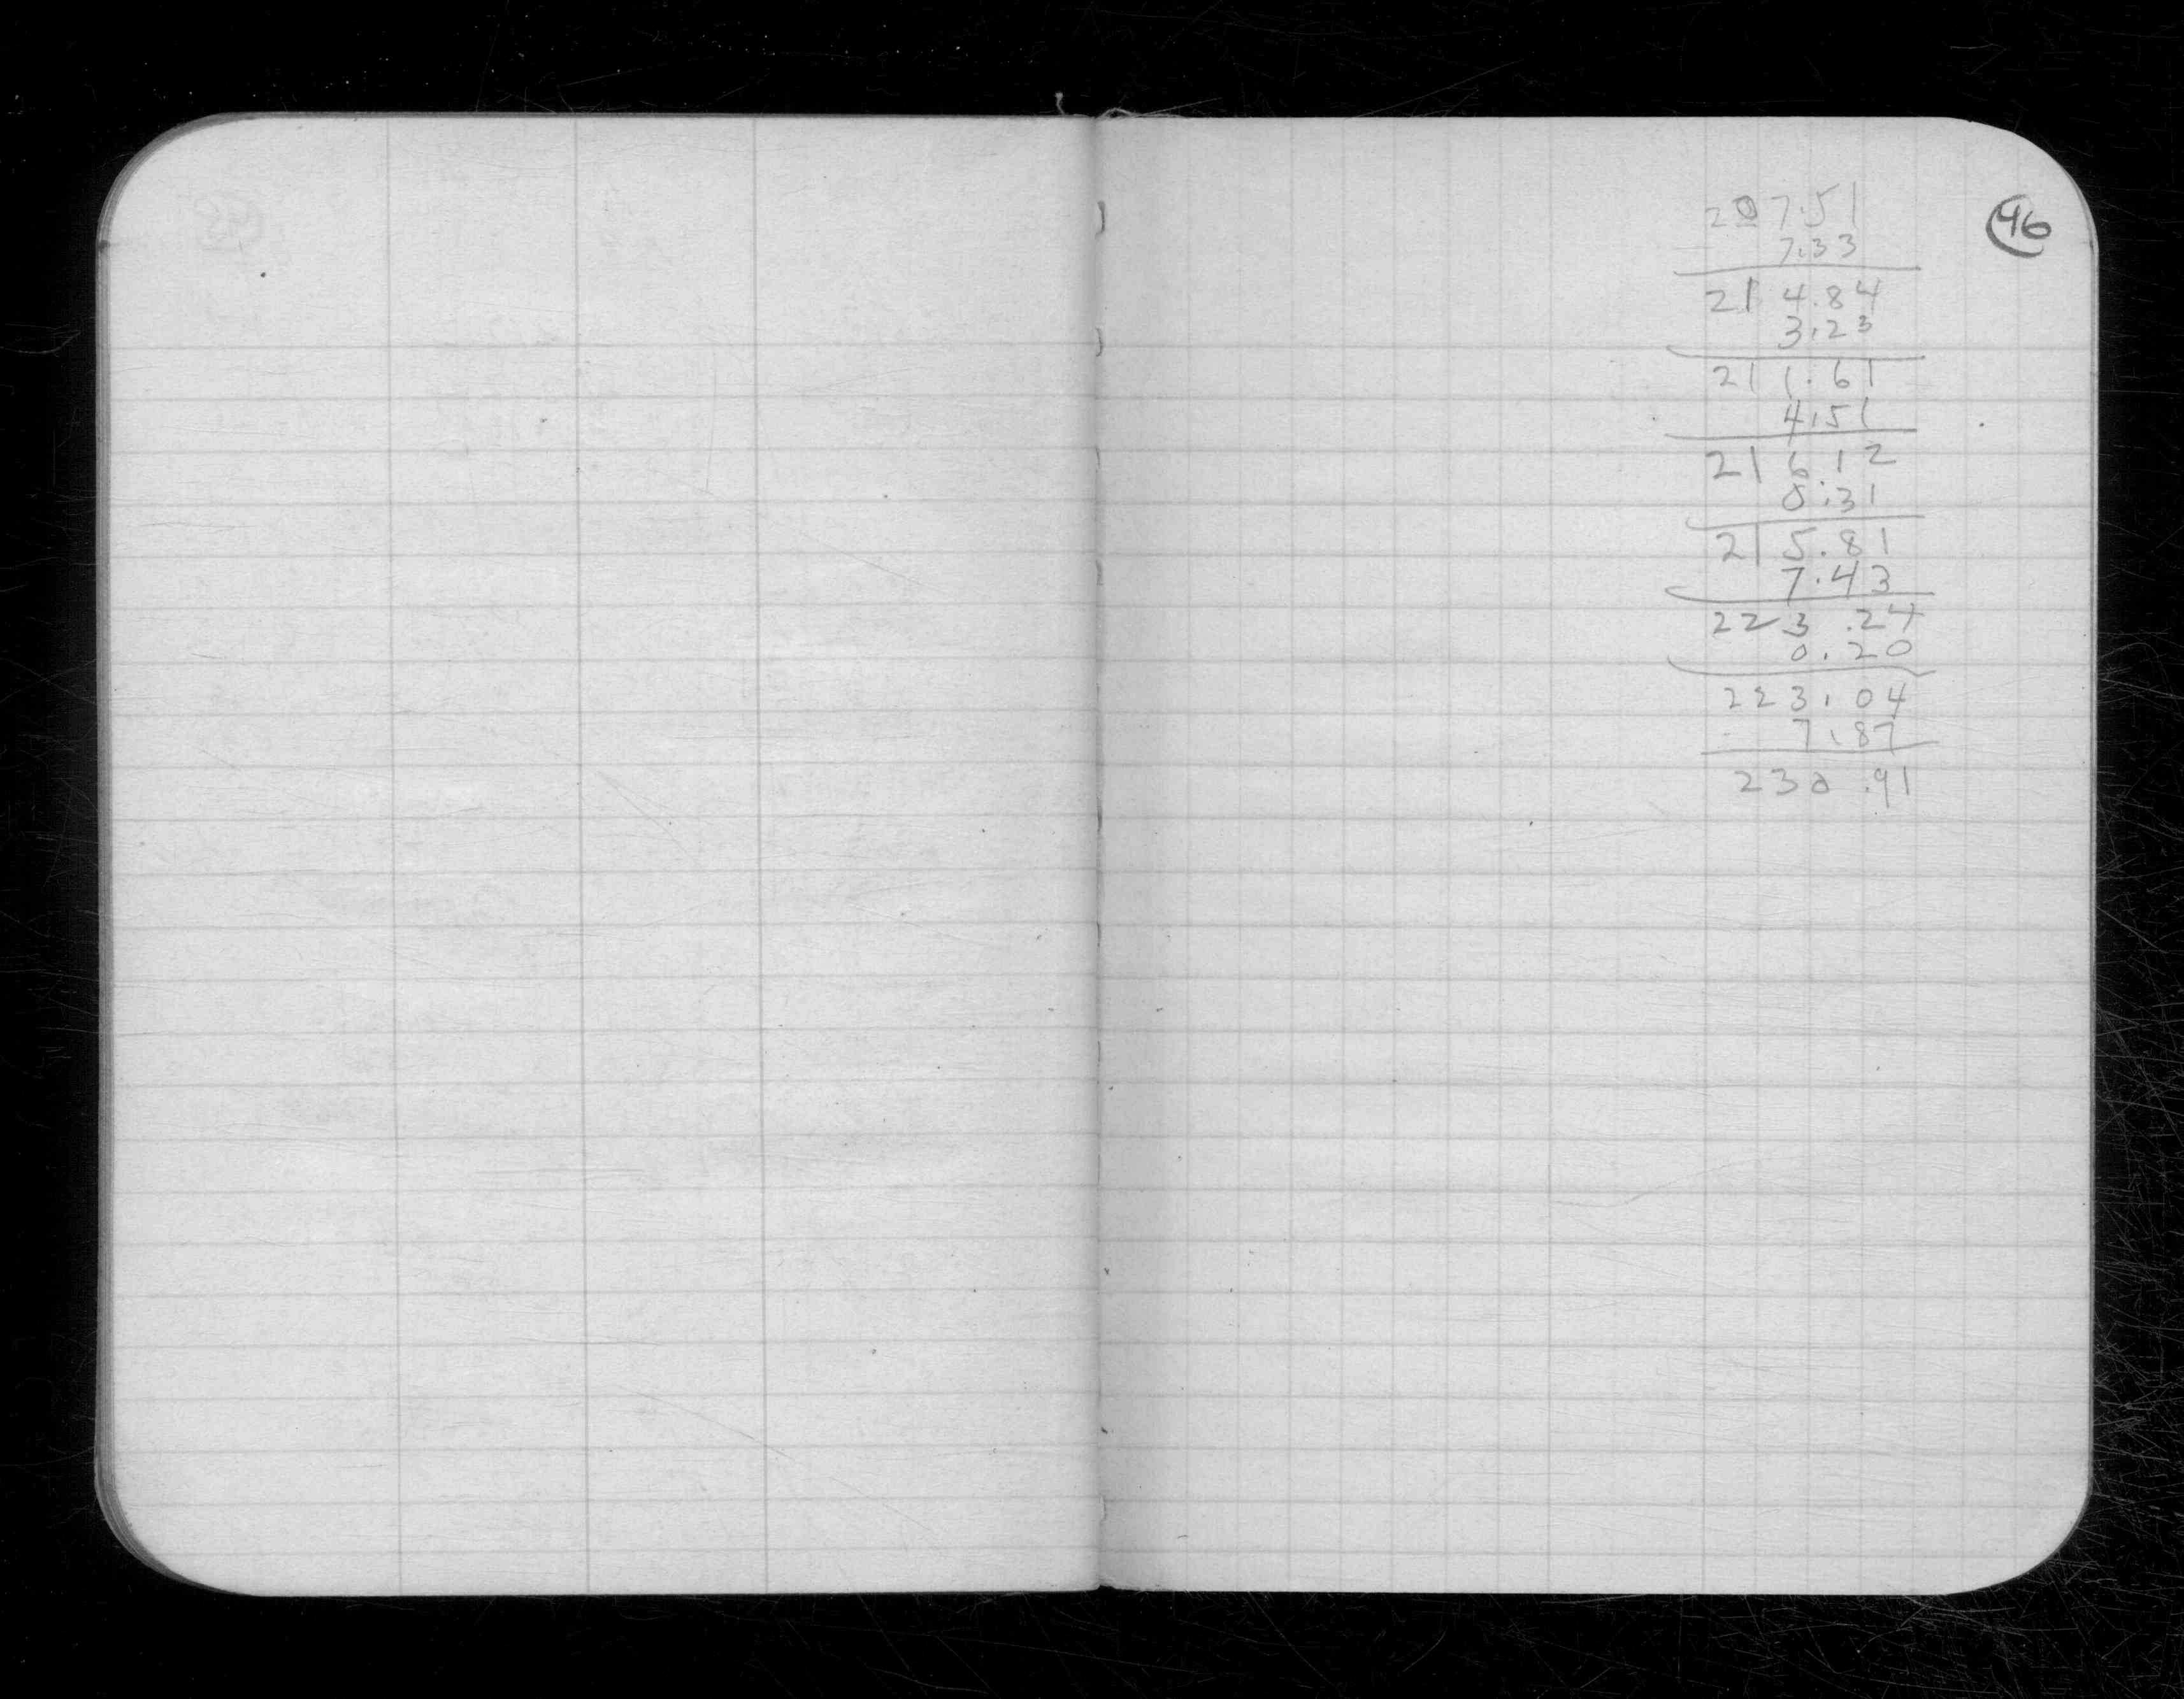 46
207.51
7.33
214.84
3.23
211.61
4.51
216.12
0.31
215.81
7.43
223.24
0.20
223.04
7.87
230.91